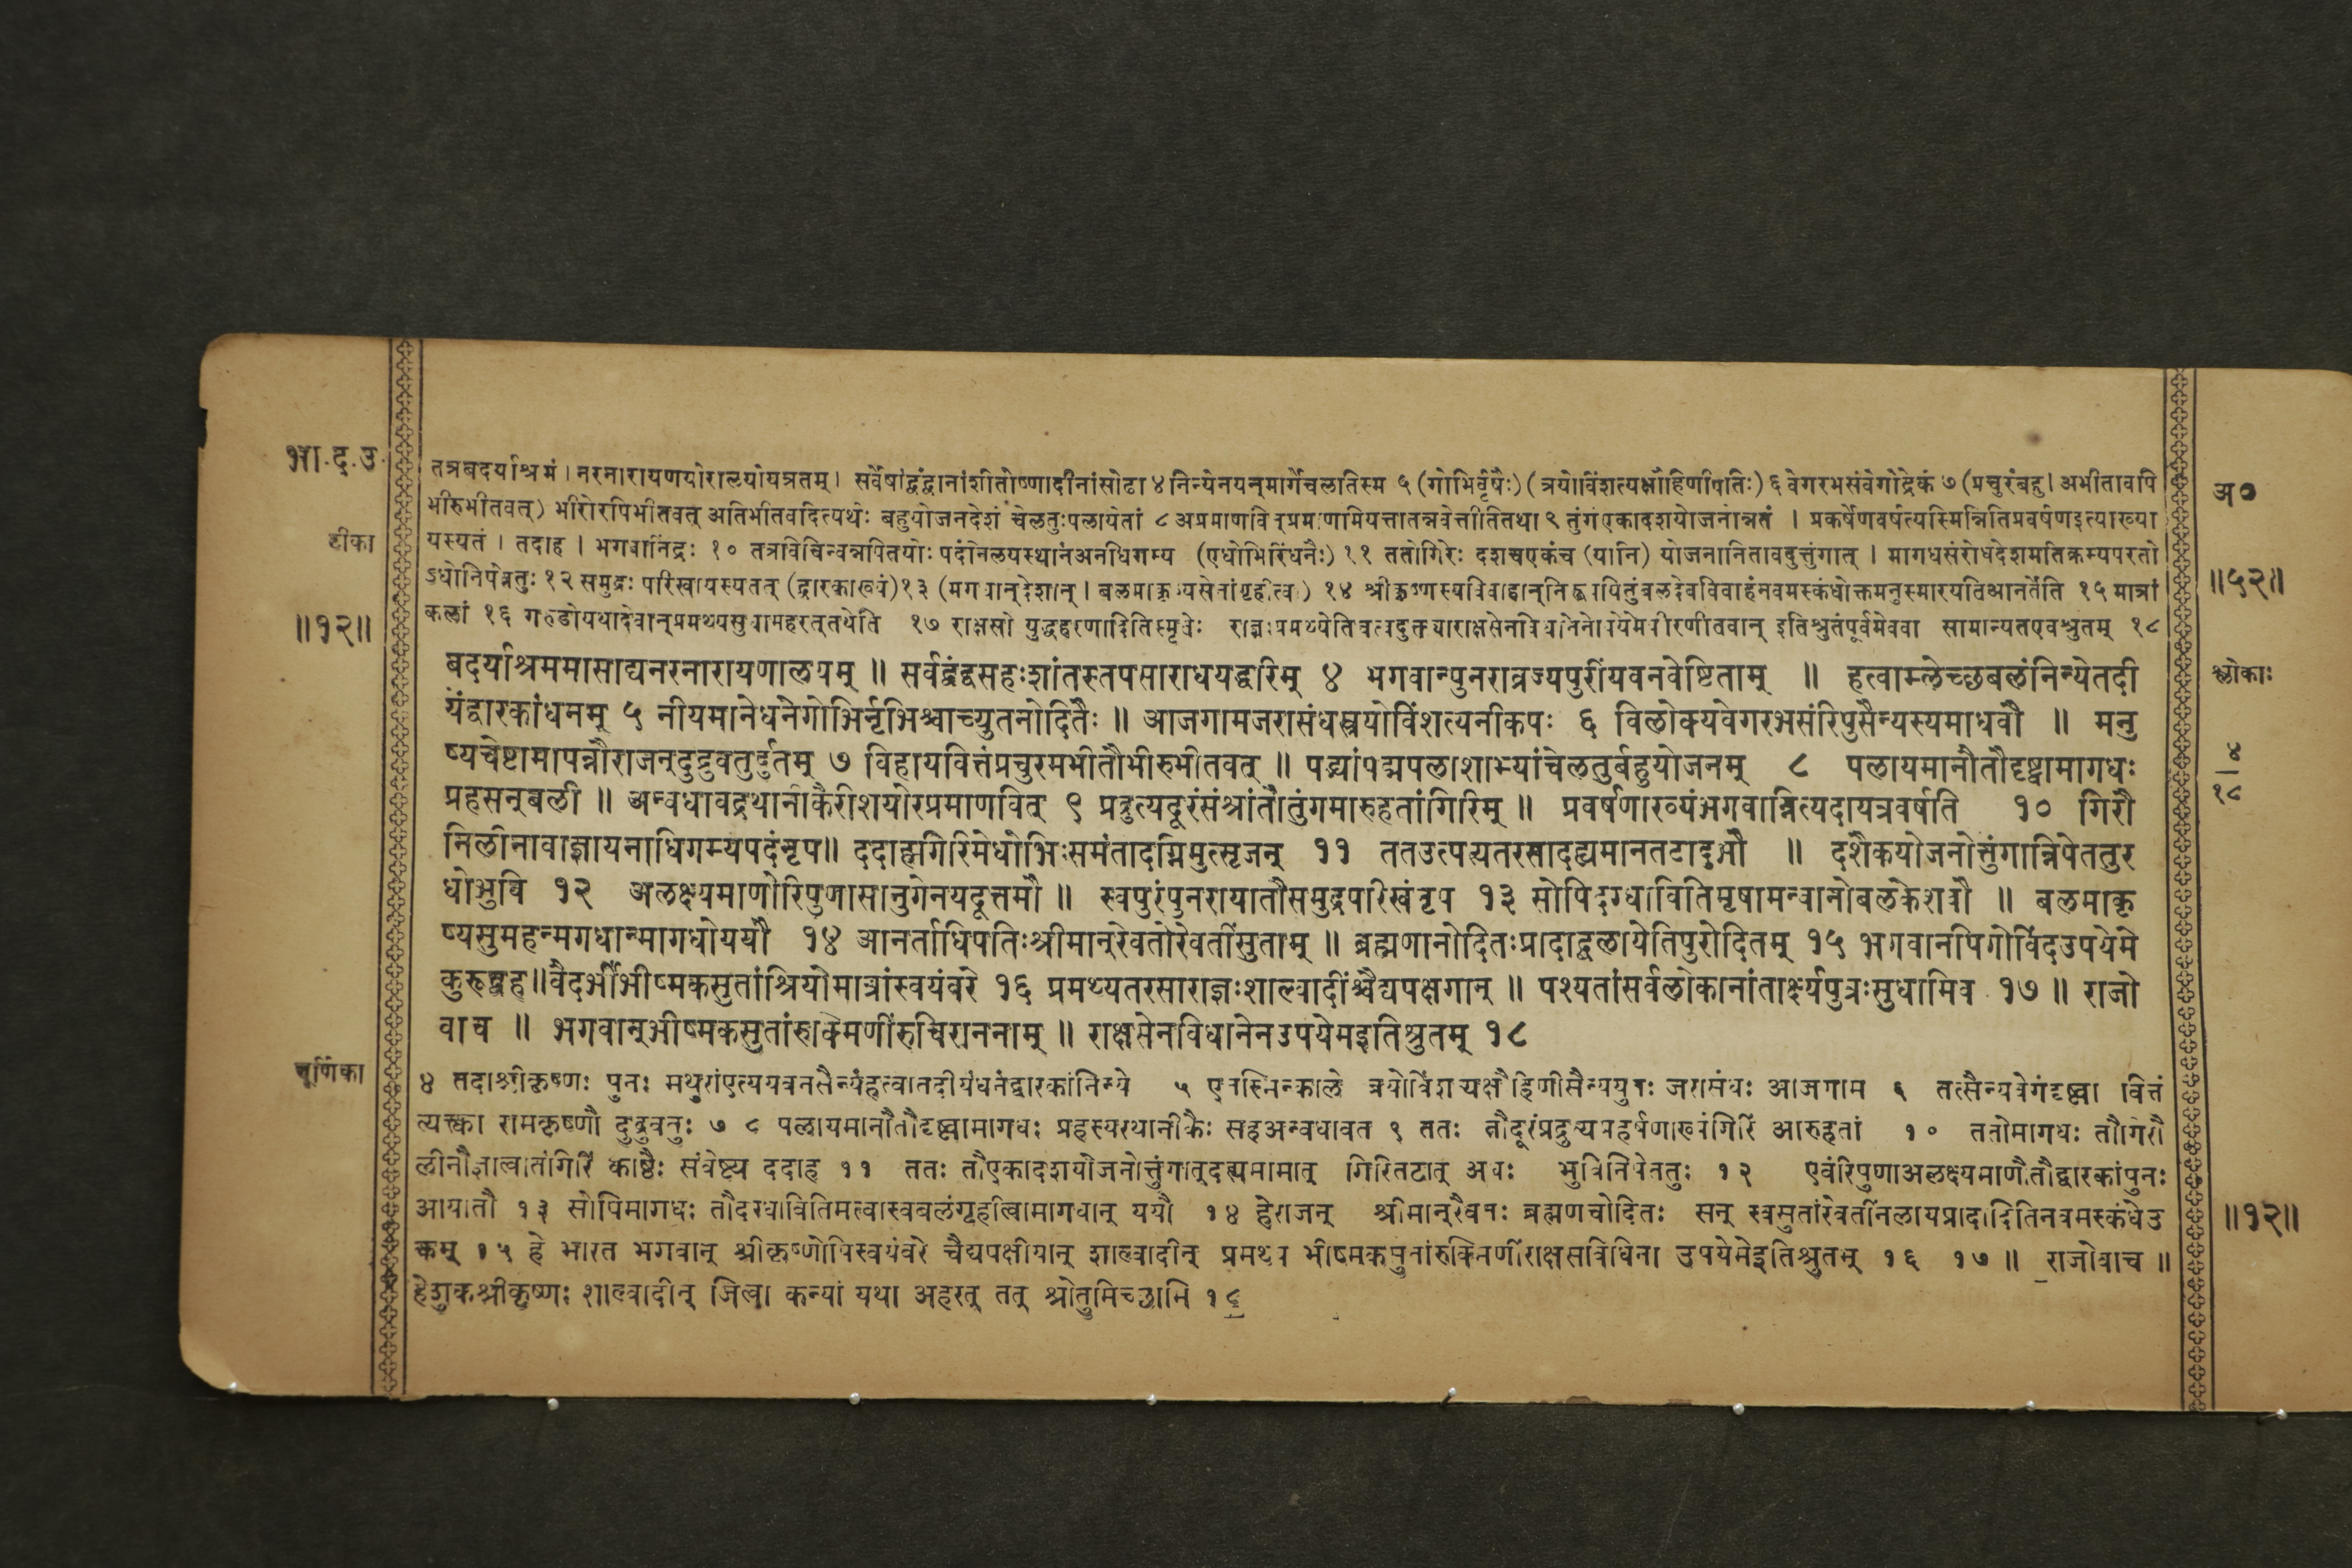 भा.द.उ.
तत्रबदर्याश्रमं। नरनारायणयोरालयोयत्रतम्। सर्वेषांद्वंद्वानांशीतोष्णादीनांसोढा ४ निन्येनयन्मार्गेचलतिस्म ५ (गोभिर्वृषैः) (त्रयोविंशत्यक्षौहिणीपतिः) ६ वेगरभसंवेगोद्रेकं ७ (प्रचुरंबहु। अभीतावपि
अ०
भीरुभीतवत्) भीरोरपिभीतवत् अतिभीतवदित्यर्थः बहुयोजनदेशं चेलतुःपलायेतां ८ अप्रमाणवित्प्रमाणमियत्तातन्नवेत्तीतितथा ९ तुंगंएकादशयोजनोन्नतं । प्रकर्षेणवर्षत्यस्मिन्नितिप्रवर्षणइत्याख्या
टीका
यस्यतं । तदाह । भगवानिंद्रः १० तत्रविचिन्वन्नपितयोः पदंनिलयस्थानंअनधिगम्य (एधोभिरिंधनैः) ११ ततोगिरेः दशचएकंच (यानि) योजनानितावदुत्तुंगात् । मागधसंरोधदेशमतिक्रम्यपरतो
ऽधोनिपेततुः १२ समुद्रः परिखायस्यतत् (द्वारकाख्यं) १३ (मगधान्देशान्। बलमाकृष्यसेनांगृहीत्वा) १४ श्रीकृष्णस्यविवाहान्निरूपयितुंबलदेवविवाहंनवमस्कंधोक्तमनुस्मारयतिआनर्तेति १५ मात्रां
॥५२॥
कलां १६ गरुडोयथादेवान्प्रमथ्यसुधामहरत्तथेति १७ राक्षसो युद्धहरणादितिस्मृतेः इतिश्रुतंपूर्वमेवत्वया सामान्यतएवश्रुतम् १८
॥१२॥
बदर्याश्रममासाद्यनरनारायणालयम् ॥ सर्वद्वंद्वसहःशांतस्तपसाराधयद्धरिम् ४ भगवान्पुनराव्रज्यपुरींयवनवेष्टिताम् ॥ हत्वाम्लेच्छबलंनिन्येतदी
श्लोकाः
यंद्वारकांधनम् ५ नीयमानेधनेगोभिर्नृभिश्चाच्युतनोदितैः ॥ आजगामजरासंधस्त्रयोविंशत्यनीकपः ६ विलोक्यवेगरभसंरिपुसैन्यस्यमाधवौ ॥ मनु
ष्यचेष्टामापन्नौराजन्दुद्रुवतुर्द्रुतम् ७ विहायवित्तंप्रचुरमभीतौभीरुभीतवत् ॥ पद्भ्यांपद्मपलाशाभ्यांचेलतुर्बहुयोजनम् ८ पलायमानौतौदृष्ट्वामागधः
४
१८
प्रहसन्बली ॥ अन्वधावद्रथानीकैरीशयोरप्रमाणवित् ९ प्रद्रुत्यदूरंसंश्रांतौतुंगमारुहतांगिरिम् ॥ प्रवर्षणाख्यंभगवान्नित्यदायत्रवर्षति १० गिरौ
निलीनावाज्ञायनाधिगम्यपदंनृप॥ ददाहगिरिमेधोभिःसमंतादग्निमुत्सृजन् ११ ततउत्पत्यतरसादह्यमानतटादुभौ ॥ दशैकयोजनोत्तुंगान्निपेततुर
धोभुवि १२ अलक्ष्यमाणोरिपुणासानुगेनयदूत्तमौ ॥ स्वपुरंपुनरायातौसमुद्रपरिखंनृप १३ सोपिदग्धावितिमृषामन्वानोबलकेशवौ ॥ बलमाकृ
ष्यसुमहन्मगधान्मागधोययौ १४ आनर्ताधिपतिःश्रीमान्रेवतोरेवतींसुताम् ॥ ब्रह्मणानोदितःप्रादाद्बलायेतिपुरोदितम् १५ भगवानपिगोविंदउपयेमे
कुरूद्वह॥वैदर्भींभीष्मकसुतांश्रियोमात्रांस्वयंवरे १६ प्रमथ्यतरसाराज्ञःशाल्वादींश्चैद्यपक्षगान् ॥ पश्यतांसर्वलोकानांतार्क्ष्यपुत्रःसुधामिव १७ ॥ राजो
वाच ॥ भगवान्भीष्मकसुतांरुक्मिणींरुचिराननाम् ॥ राक्षसेनविधानेनउपयेमइतिश्रुतम् १८
चूर्णिका
४ तदाश्रीकृष्णः पुनः मथुरांएत्ययवनसैन्यंहत्वातदीयंधनंद्वारकांनिन्ये ५ एतस्मिन्काले त्रयोविंशत्यक्षौहिणीसैन्ययुतः जरासंधः आजगाम ६ तत्सैन्यवेगंदृष्ट्वा वित्तं
त्यक्त्वा रामकृष्णौ दुद्रुवतुः ७ ८ पलायमानौतौदृष्ट्वामागधः प्रहस्यरथानीकैः सहअन्वधावत ९ ततः तौदूरंप्रद्रुत्यप्रहर्षणाख्यंगिरिं आरुहतां १० ततोमागधः तौगिरौ
लीनौज्ञात्वातंगिरिं काष्ठैः संवेष्ट्य ददाह ११ ततः तौएकादशयोजनोत्तुंगात्दह्यमामात् गिरितटात् अधः भुविनिपेततुः १२ एवंरिपुणाअलक्ष्यमाणौतौद्वारकांपुनः
आयातौ १३ सोपिमागधः तौदग्धावितिमत्वास्वबलंगृहीत्वामागधान् ययौ १४ हेराजन् श्रीमान्रैवतः ब्रह्मणचोदितः सन् स्वसुतांरेवतींनलायप्रादादितिनवमस्कंधेउ
॥१२॥
क्तम् १५ हे भारत भगवान् श्रीकृष्णोपिस्वयंवरे चैद्यपक्षीयान् शाल्वादीन् प्रमथ्य भीष्मकसुतांरुक्मिणींराक्षसविधिना उपयेमेइतिश्रुतम् १६ १७ ॥ राजोवाच ॥
हेशुकश्रीकृष्णः शाल्वादीन् जित्वा कन्यां यथा अहरत् तत् श्रोतुमिच्छामि १८